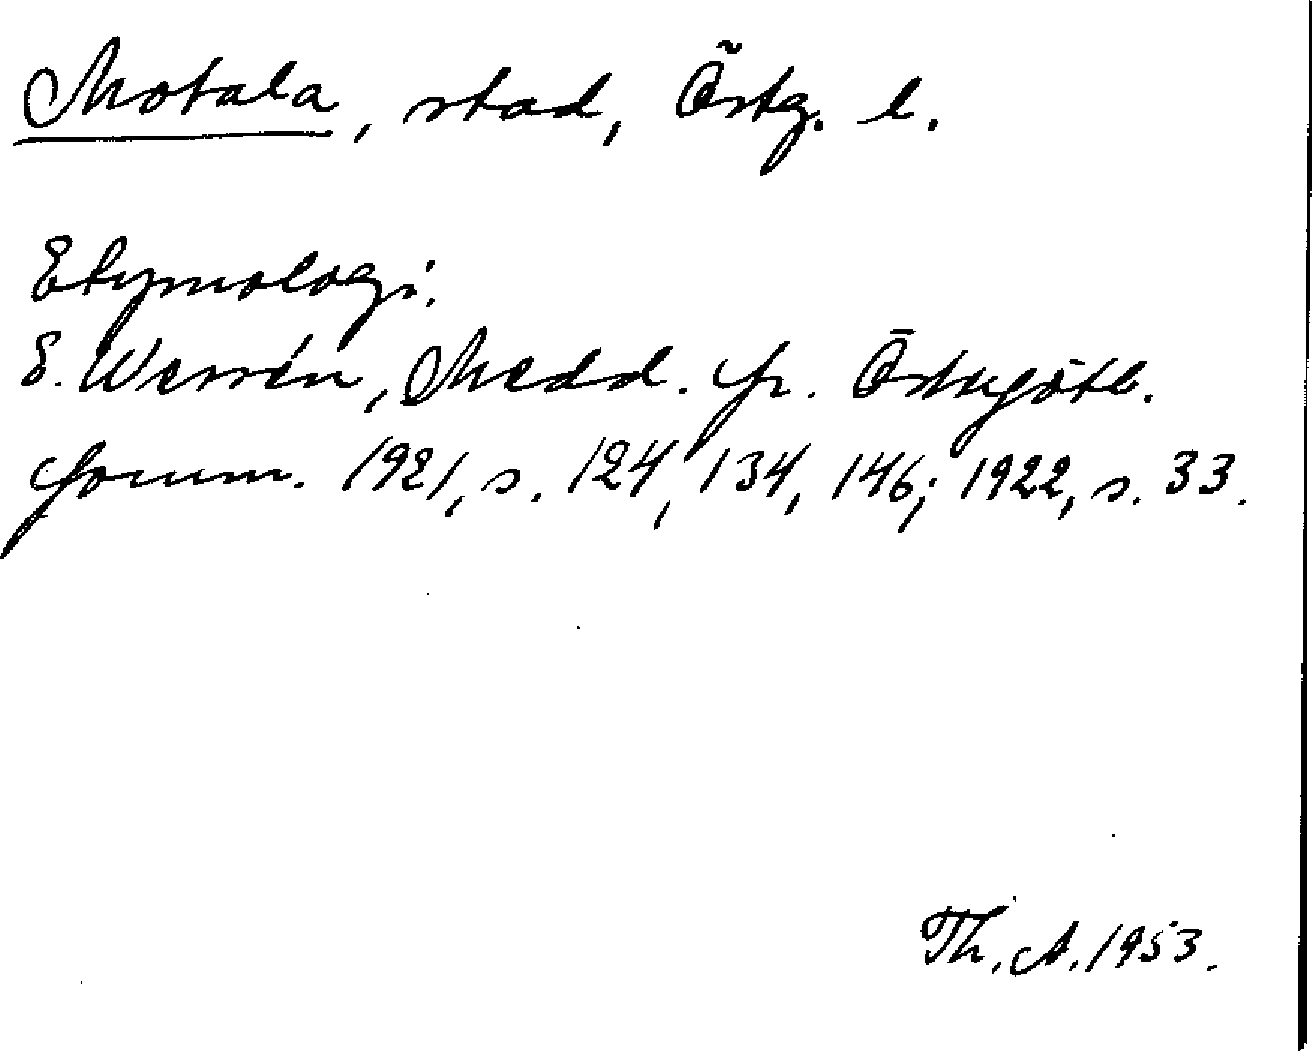 Motala, stad, Östg. l.
Etymologi.
E. Wessén, Medd. fr. Östergötl.
fornm. 1921, s. 124, 134, 146; 1922, s. 33.
Th. A. 1953.